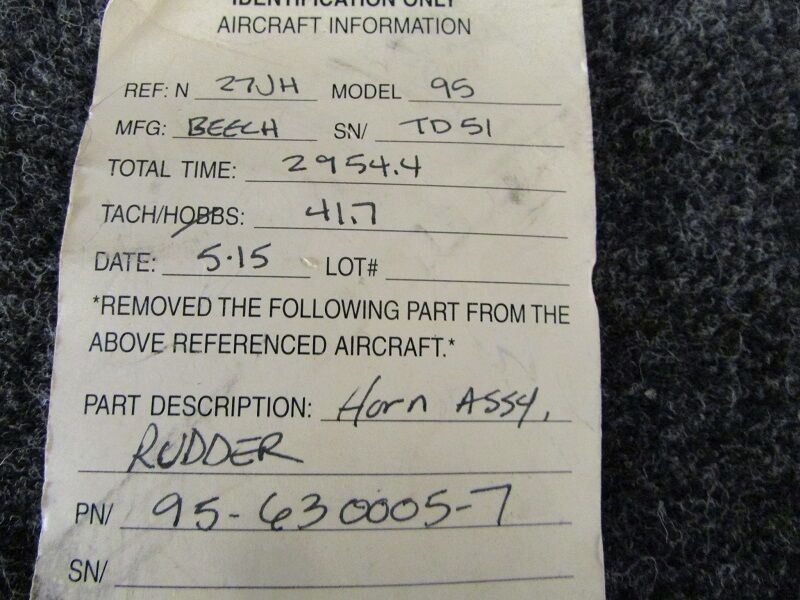 IDENTIFICATION ONLY
AIRCRAFT INFORMATION
REF: N 27JH MODEL 95
MFG: BEECH SN/ TD51
TOTAL TIME: 2954.4
TACH/HOBBS: 41.7
DATE: 5.15 LOT#
*REMOVED THE FOLLOWING PART FROM THE
ABOVE REFERENCED AIRCRAFT.*
PART DESCRIPTION: Horn ASSY,
RUDDER
PN/ 95-630005-7
SN/